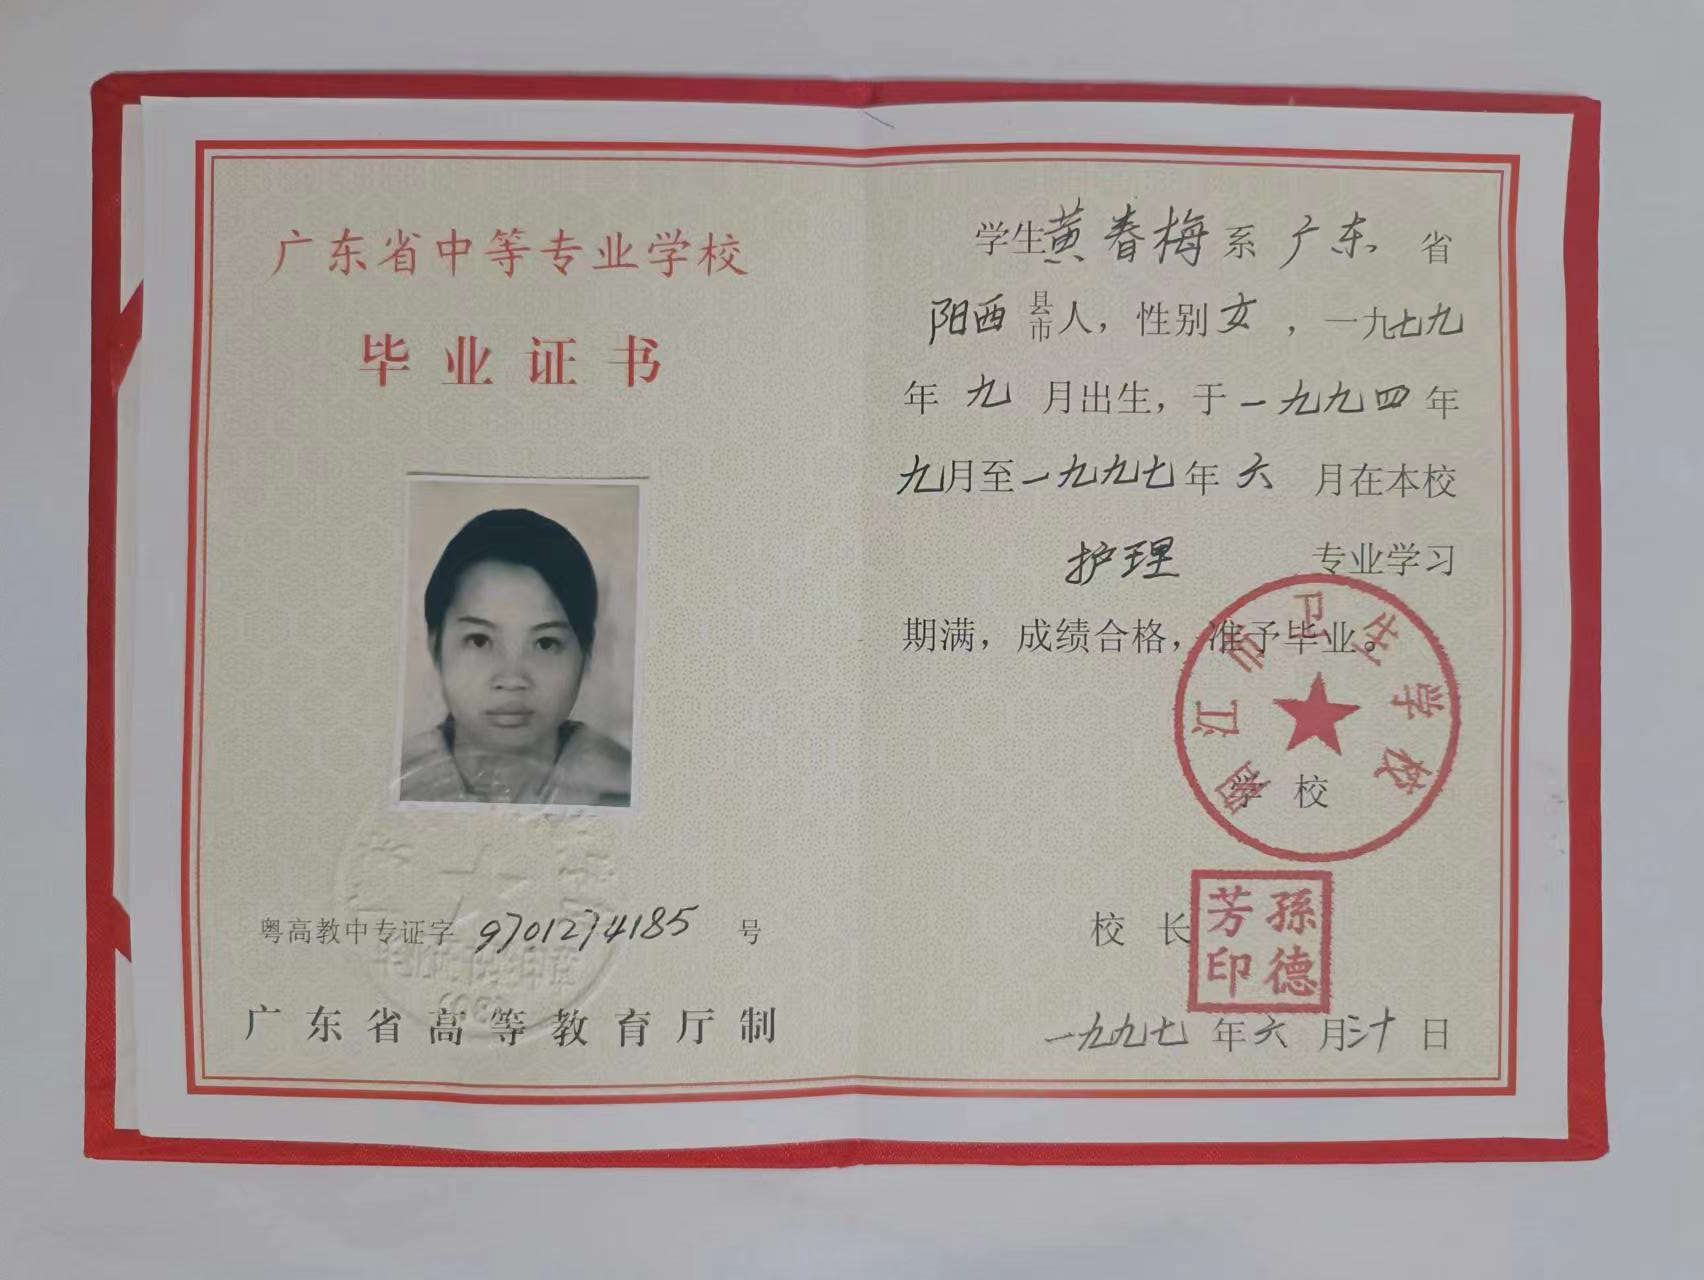 广东省中等专业学校
毕业证书
粤高教中专证字 9701274185 号
广东省高等教育厅制
学生黄春梅系广东省
阳西县市人，性别女，一九七九
年九月出生，于一九九四年
九月至一九九七年六月在本校
护理专业学习
期满，成绩合格，准予毕业。
阳江市卫生学校
学校
校长
孫德芳印
一九九七年六月三十日